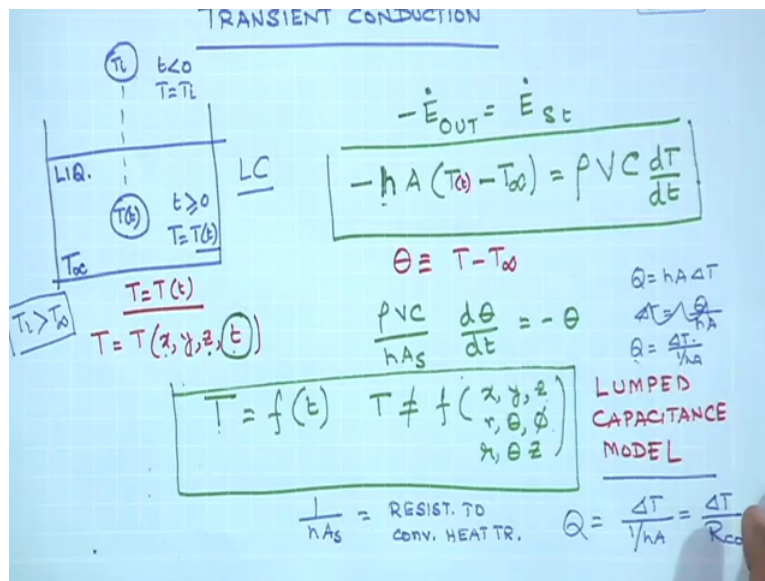 TRANSIENT CONDUCTION
Ti t<0
T=Ti
LIQ.
T(t) t≥0
T=T(t)
T∞
LC
Ti>T∞
T=T(t)
T=T(x,y,z,t)
-Ė OUT = Ė St
-hA(T(t)-T∞)=ρVC dT/dt
θ≡ T-T∞
ρVC/hAs dθ/dt = -θ
Q=hAΔT
ΔT= Q/hA
Q= ΔT/1/hA
T=f(t) T≠f(x,y,z
r,θ,φ
r,θ z)
LUMPED
CAPACITANCE
MODEL
1/hAs = RESIST. TO
CONV. HEAT TR.
Q= ΔT/1/hA = ΔT/